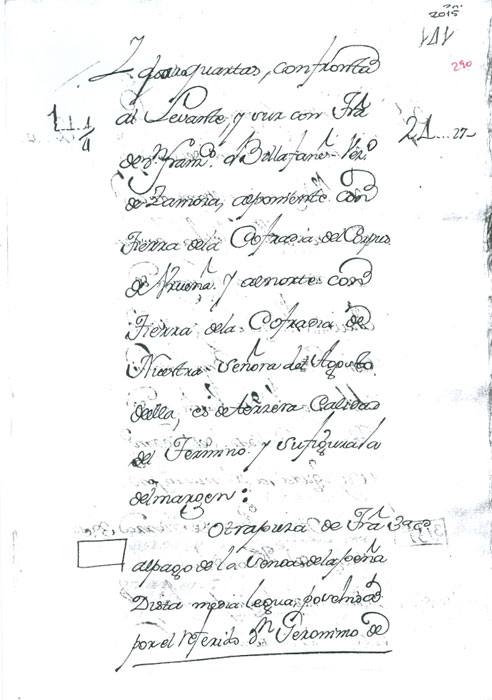 2015
290
y dos quartas, confronta
al Levante, y sur con Trã
de Dn. Franco. Villafane Vezo.
de Zamora, alponiente con
Tierra dela Cofradia del Corpus
de Urueña y alnorte con
Tierra dela Cofradia de
Nuestra Señora del Agosto
deella, es de terzera Calidad
del Termino y sufigura la
delmargen:
21...27
Otrapieza de Trã
alpago de la Senda delapeña
Dista media legua, posehida
por el referido Dn. Geronimo de